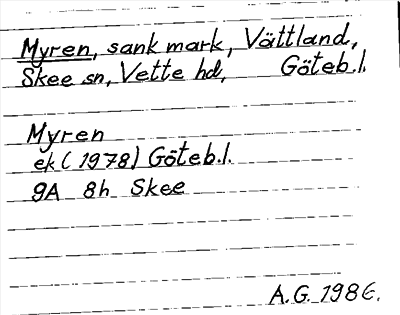 Myren, sank mark, Vättland,
Skee sn, Vette hd, Göteb.l.
Myren
ek (1978) Göteb.l.
9A 8h Skee
A.G. 1986.